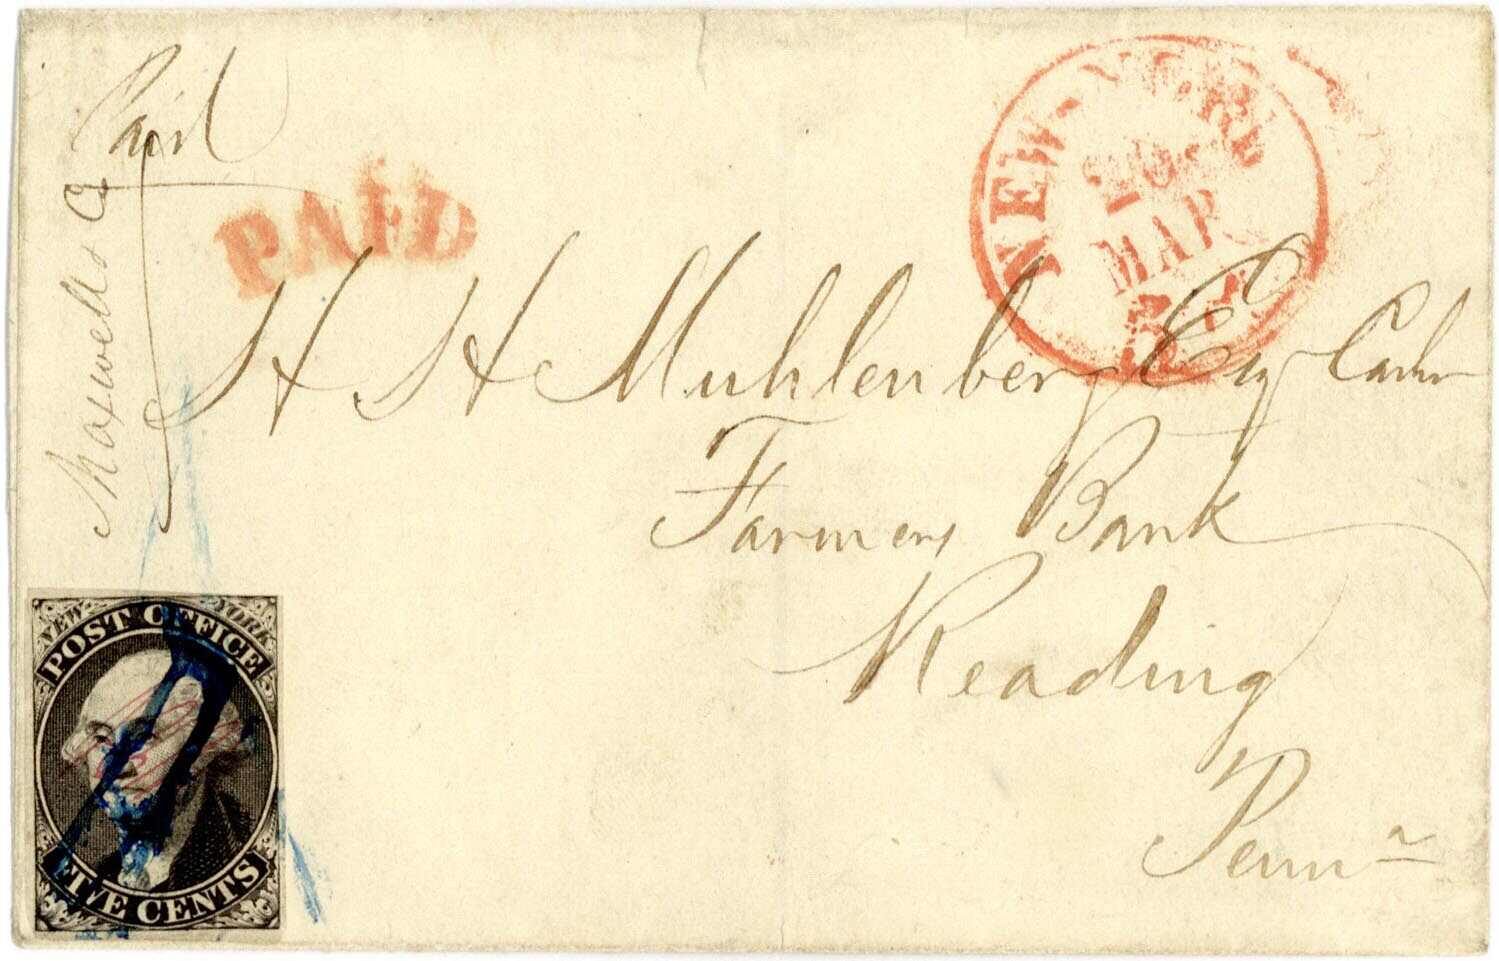 Paid
Maxwell & Co
PAID
NEW-YORK
20
MAR
H H Muhlenberg Esq Cashr
Farmers Bank
Reading
Penna
NEW YORK
POST OFFICE
FIVE CENTS